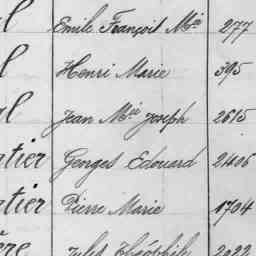 l Emile François Mie 277
l Henri Marie 395
al Jean Mie Joseph 2615
tier Georges Edouard 2406
tier Pierre Marie 1704
ère Jules Théophile 2022